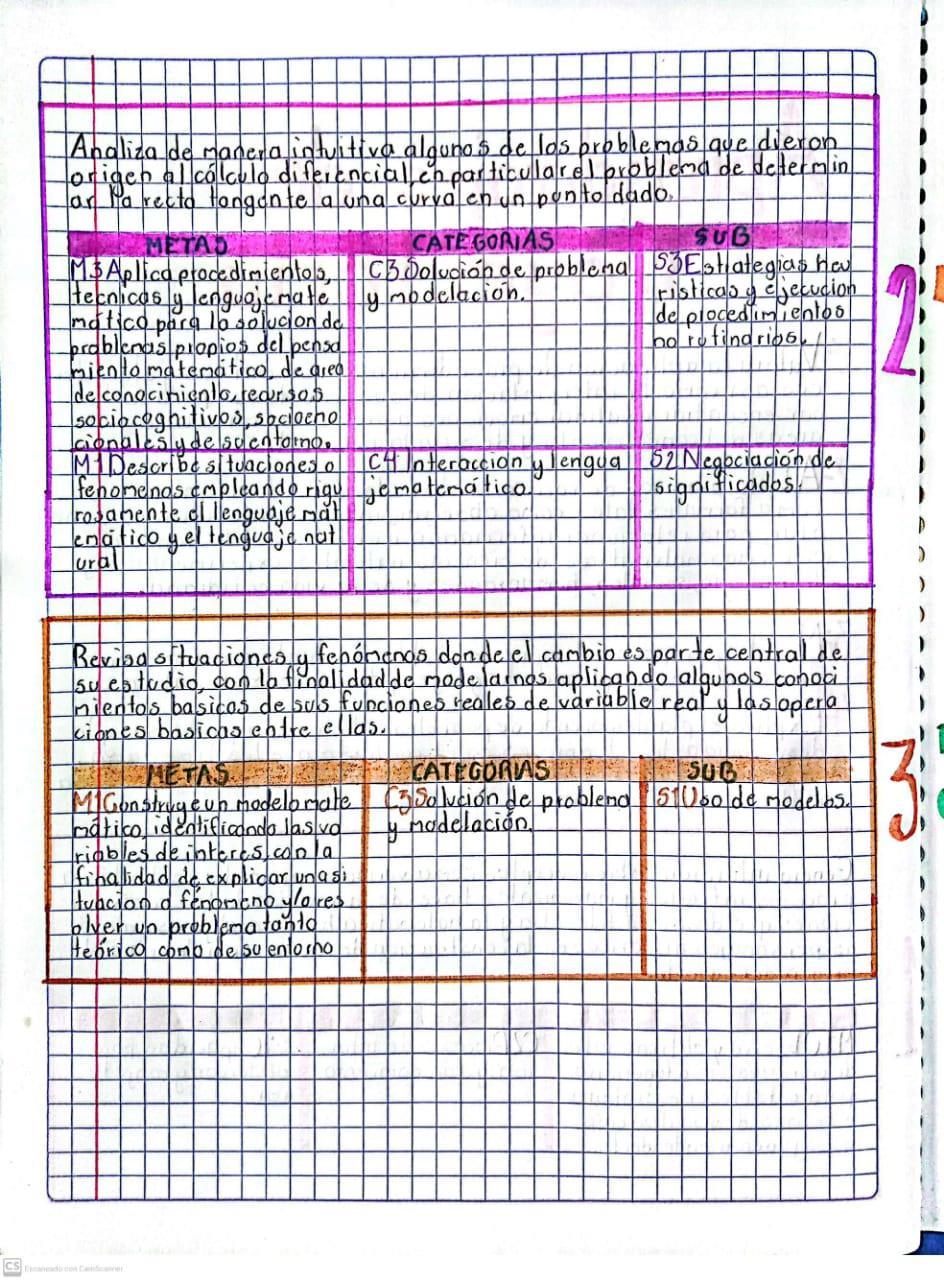 Analiza de manera intuitiva algunos de los problemas que dieron
origen al cálculo diferencial, en particular el problema de determin
ar la recta tangente a una curva en un punto dado.
METAS CATEGORIAS SUB
M3 Aplica procedimientos,
tecnicas y lenguaje mate
mático para la solucion de
problemas propios del pensa
miento matemático, de area
de conocimiento, recursos
sociocognitivos, socioemo
cionales y de su entorno.
C3 Solución de problema
y modelación.
S3 Estrategias heu
risticas y ejecucion
de procedimientos
no rutinarios.
M1 Describe situaciones o
fenomenos empleando rigu
rosamente el lenguaje mat
emático y el lenguaje nat
ural
C4 Interaccion y lengua
je matemático.
S2 Negociación de
significados.
2
Revisa situaciones y fenómenos donde el cambio es parte central de
su estudio, con la finalidad de modelarlos aplicando algunos conoci
mientos basicos de sus funciones reales de variable real y las opera
ciones basicas entre ellas.
METAS CATEGORIAS SUB
M1 Construye un modelo mate
mático, identificando las va
riables de interes, con la
finalidad de explicar una si
tuacion o fenómeno y/o res
olver un problema tanto
teórico como de su entorno
C3 Solución de problema
y modelación.
S1 Uso de modelos.
3
CS Escaneado con CamScanner